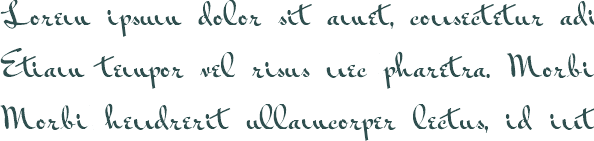 Lorem ipsum dolor sit amet, consectetur adi
Etiam tempor vel risus nec pharetra. Morbi
Morbi hendrerit ullamcorper lectus, id int